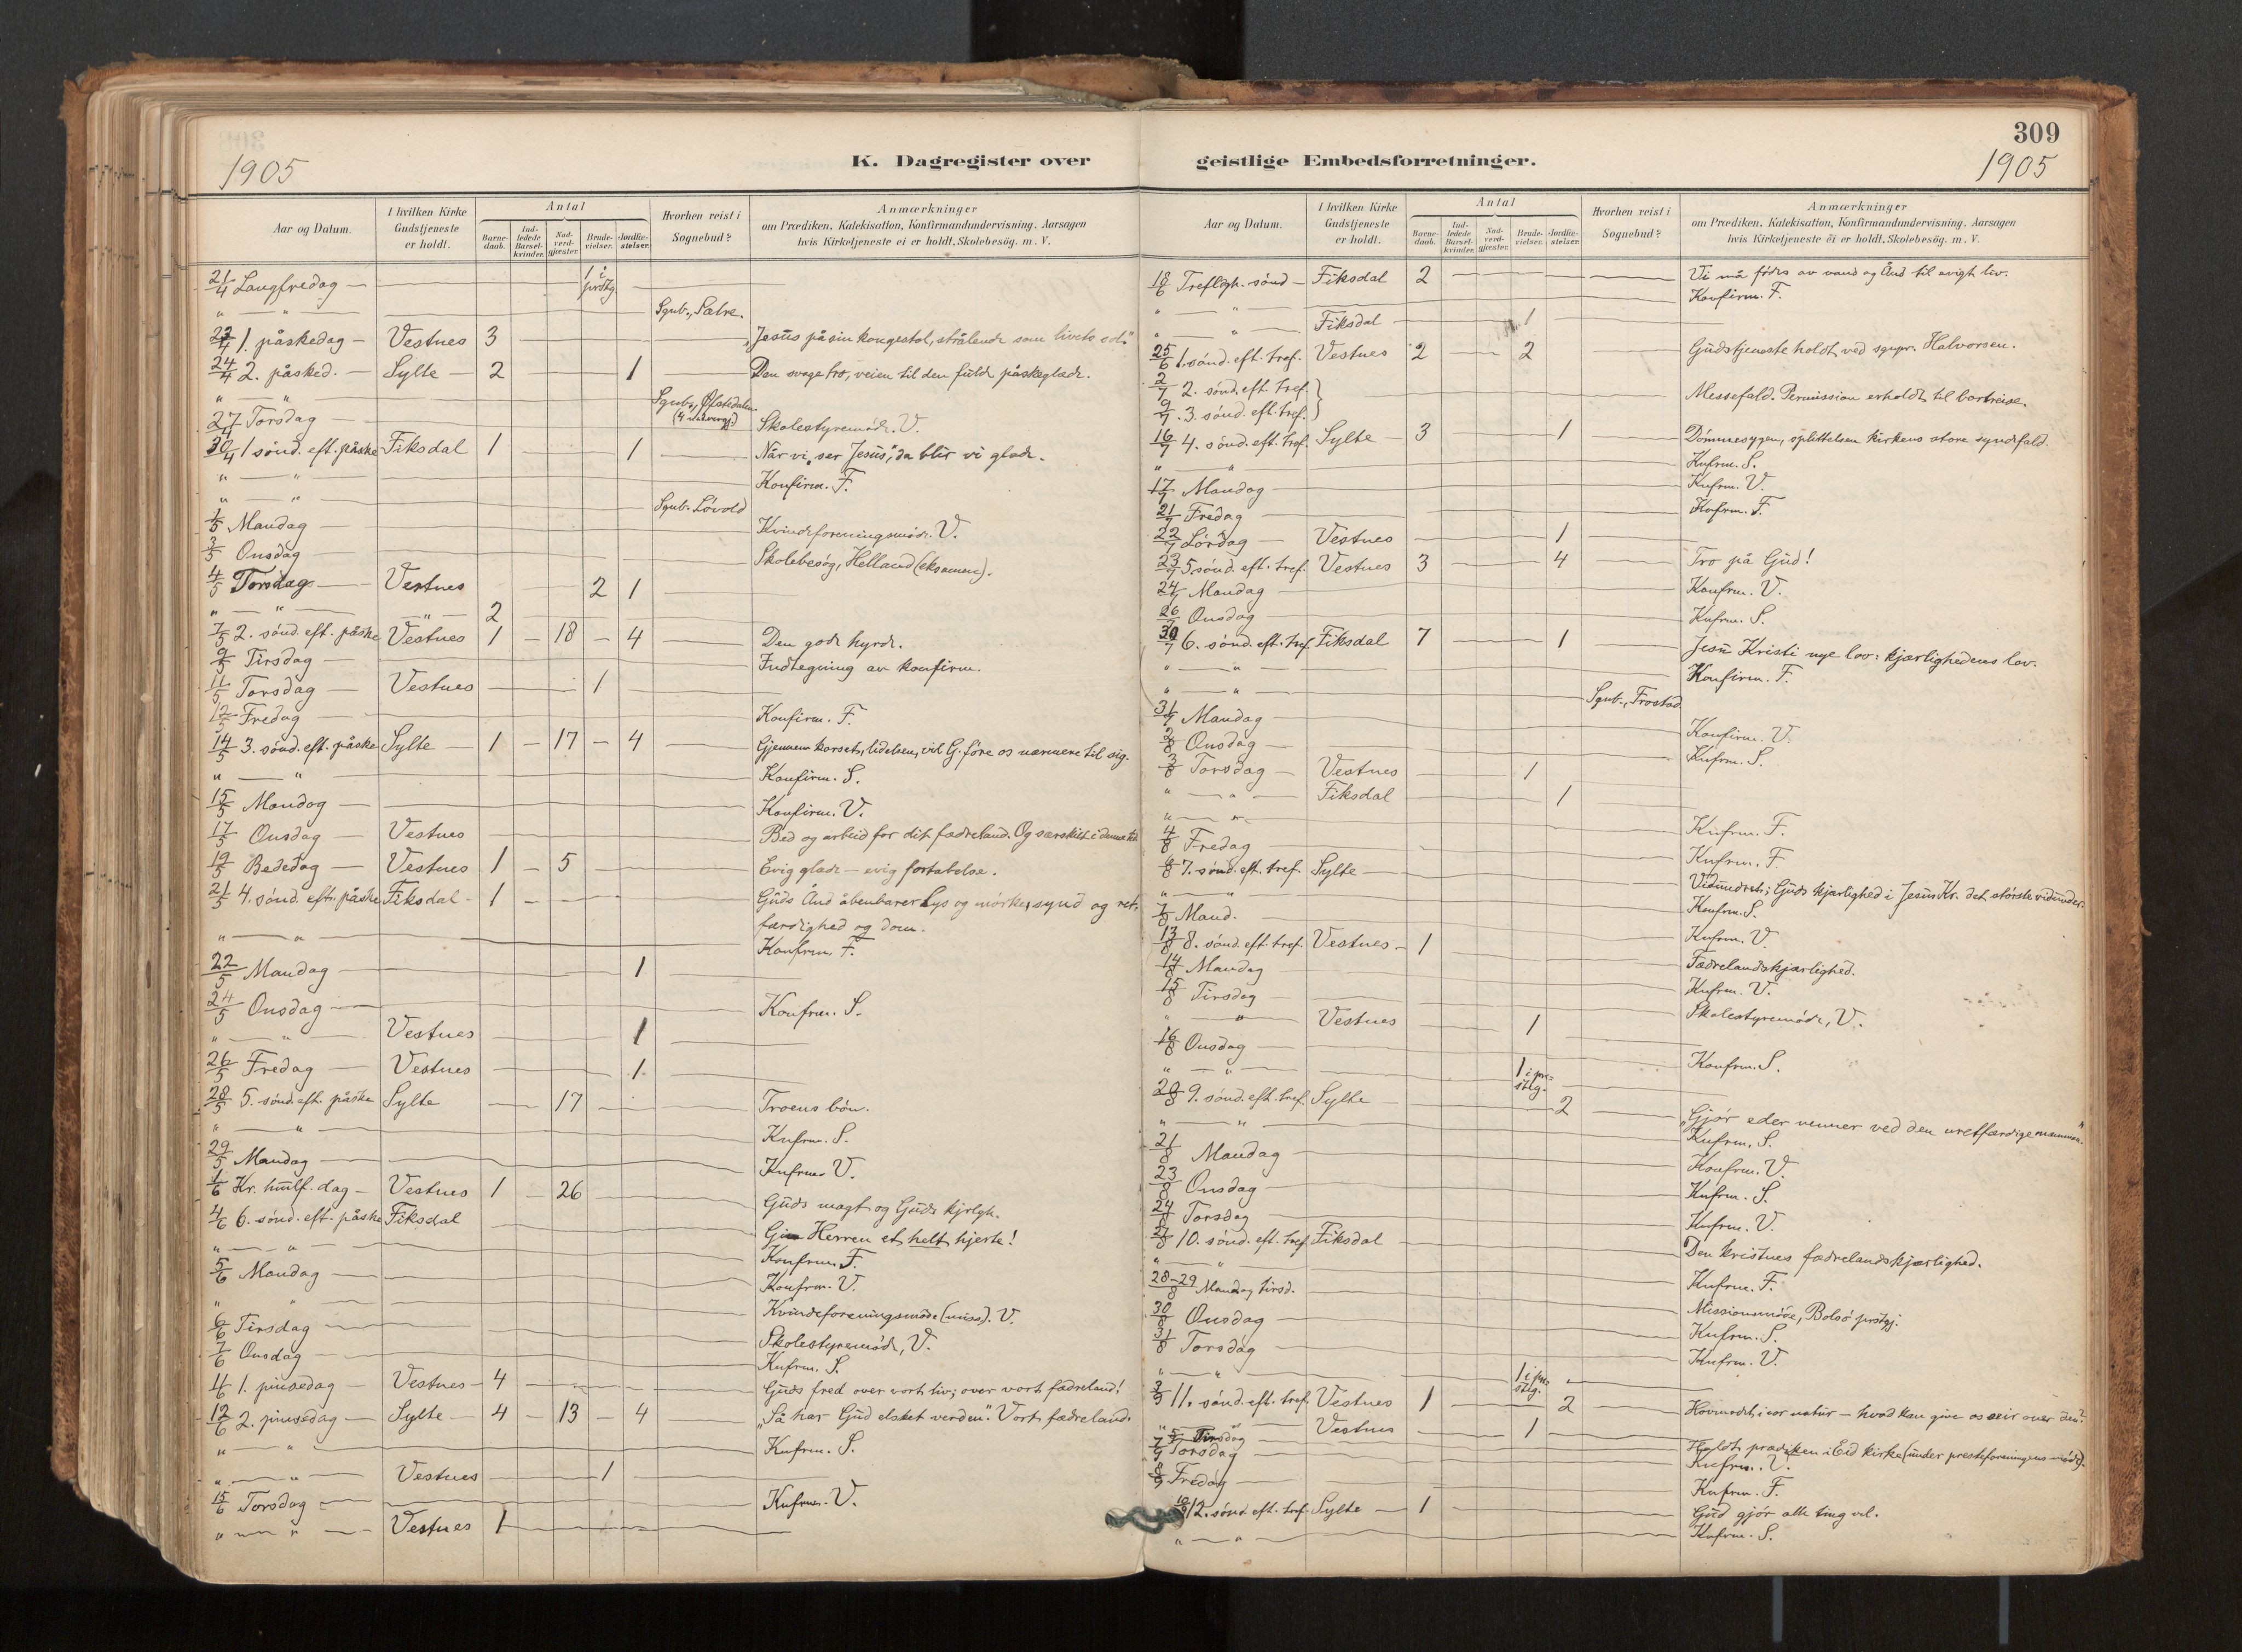 1905
K. Dagregister over
Aar og Datum.
I hvilken Kirke Gudstjeneste er holdt.
Antal
Barne-daab.
Ind-ledede Barsel-kvinder.
Nad-verd-gjæster.
Brude-vielser.
Jordfæ-stelser.
Hvorhen reist i Sognebud?
Anmærkninger
om Prædiken, Katekisation, Konfirmandundervisning, Aarsagen
hvis Kirketjeneste ei er holdt, Skolebesög. m. V.
21/4 Langfredag — 1 i prstg.
" — " — Sgnb., Sætre.
23/4 1. påskedag — Vestnes 3 — "Jesus på sin kongestol, strålende som livets sol."
24/4 2. påsked. — Sylte — 2 — 1 Den svage tro, veien til den fulde påskeglæde.
" — " Sgnb., Ølstedalen
27/4 Torsdag — Skolestyremöde. V.
30/4 1 sönd. eft. påske Fiksdal 1 — 1 — Når vi "ser Jesus", da blir vi glade.
" — " Konfirm. F.
" — " Sgnb. Lövold
1/5 Mandag — Kvindeforeningsmöde. V.
3/5 Onsdag — Skolebesög, Helland (eksamen).
4/5 Torsdag — Vestnes 2 1
" — " — " — 2
7/5 2. sönd. eft. påske Vestnes 1 — 18 — 4 — Den gode hyrde.
9/5 Tirsdag — Indtegning av konfirm.
11/5 Torsdag — Vestnes — 1
12/5 Fredag — Konfirm. F.
14/5 3. sönd. eft. påske Sylte — 1 — 17 — 4 — Gjennem korset, lidelsen, vil G. före os nærmere til sig.
" — " Konfirm. S.
15/5 Mandag — Konfirm. V.
17/5 Onsdag — Vestnes — Bed og arbeid for dit fædreland. Og særskilt i denne tid.
19/5 Bededag — Vestnes 1 — 5 — Evig glæde — evig fortabelse.
21/5 4. sönd. eft. påske Fiksdal — 1 — Guds Ånd åbenbarer Lys og mörke, synd og ret-
færdighed og dom.
" — " Konfrm. F.
22/5 Mandag — 1
24/5 Onsdag — Konfrm. S.
" — " — Vestnes — 1
26/5 Fredag — Vestnes — 1
28/5 5. sönd. eft. påske Sylte — 17 — Troens bön.
" — " Knfrm. S.
29/5 Mandag — Knfrm. V.
1/6 Kr. himlf. dag — Vestnes 1 — 26 — Guds magt og Guds kjrlgh.
4/6 6. sönd. eft. påske Fiksdal — Giv Herren et helt hjerte!
" — " Konfrm. F.
5/6 Mandag — Konfrm. V.
" " Kvindeforeningsmöde (miss). V.
6/6 Tirsdag — Skolestyremöde, V.
7/6 Onsdag — Knfrm. S.
11/6 1. pinsedag — Vestnes — 4 — Guds fred over vort liv; over vort fædreland!
12/6 2. pinsedag — Sylte — 4 — 13 — 4 "Så har Gud elsket verden". Vort fædreland.
" — " Knfrm. S.
" — " — Vestnes — 1
15/6 Torsdag — Knfrm. V.
" — " — Vestnes 1
309
geistlige Embedsforretninger.
1905
Aar og Datum.
I hvilken Kirke Gudstjeneste er holdt.
Antal
Barne-daab.
Ind-ledede Barsel-kvinder.
Nad-verd-gjæster.
Brude-vielser.
Jordfæ-stelser.
Hvorhen reist i Sognebud?
Anmærkninger
om Prædiken, Katekisation, Konfirmandundervisning, Aarsagen
hvis Kirketjeneste ei er holdt, Skolebesög. m. V.
18/6 Treflgh. sönd — Fiksdal 2 — Vi må fødes av vand og Ånd til evigt liv.
" — " Konfirm. F.
" — " — Fiksdal — 1
25/6 1. sönd. eft. tref. Vestnes 2 — 2 — Gudstjeneste holdt ved sgnpr. Halvorsen.
2/7 2. sönd. eft. tref. }
9/7 3. sönd. eft. tref. } Messefald. Permission erholdt til bortreise.
16/7 4. sönd. eft. tref. Sylte — 3 — 1 — Dömmesygen, splittelsen kirkens store syndefald.
" — " Knfrm. S.
17/7 Mandag — Knfrm. V.
21/7 Fredag — Knfrm. F.
22/7 Lördag — Vestnes — 1
23/7 5 sönd. eft. tref. Vestnes 3 — 4 — Tro på Gud!
24/7 Mandag — Konfrm. V.
26/7 Onsdag — Knfrm. S.
30/7 6. sönd. eft. tref. Fiksdal 7 — 1 — Jesu Kristi nye lov: kjærlighedens lov.
" — " Konfirm. F.
" — " Sgnb., Frostad
31/7 Mandag — Konfirm. V.
2/8 Onsdag — Knfrm. S.
3/8 Torsdag — Vestnes — 1
" — " — Fiksdal — 1
" — " Knfrm. F.
4/8 Fredag — Knfrm. F.
6/8 7. sönd. eft. tref. Sylte — Vidundret; Guds kjærlighed i Jesus Kr. det störste vidunder.
" — " Konfrm. S.
7/8 Mand. — Knfrm. V.
13/8 8. sönd. eft. tref. Vestnes — 1 — Fædrelandskjærlighed.
14/8 Mandag — Knfrm. V.
15/8 Tirsdag — Skolestyremöde, V.
" — " Vestnes — 1
16/8 Onsdag — Konfrm. S.
" — " — 1 i pre-steg.
20/8 9. sönd. eft. tref. Sylte — 2 — "Gjør eder venner ved den uretfærdige mammon."
" — " Knfrm. S.
21/8 Mandag — Konfrm. V.
23/8 Onsdag — Knfrm. S.
24/8 Torsdag — Knfrm. V.
27/8 10. sönd. eft. tref. Fiksdal — Den kristnes fædrelandskjærlighed.
" — " Knfrm. F.
28–29/8 Mandag tirsd. Missionsmöde, Bolsö prstgj.
30/8 Onsdag — Knfrm. S.
31/8 Torsdag — Knfrm. V.
" — " 1 i pre-steg.
3/9 11. sönd. eft. tref. Vestnes 1 — 2 — Hovmodet i vor natur — hvad kan give os seir over den?
" 5/9 Tirsdag — Vestnes — 1
7/9 Torsdag — Holdt prædiken i Eid kirke (under presteforeningens möde).
Knfrm. V.
8/9 Fredag — Knfrm. F.
10/9 12. sönd. eft. tref. Sylte — 1 — Gud gjör alle ting vel.
" — " — Knfrm. S.